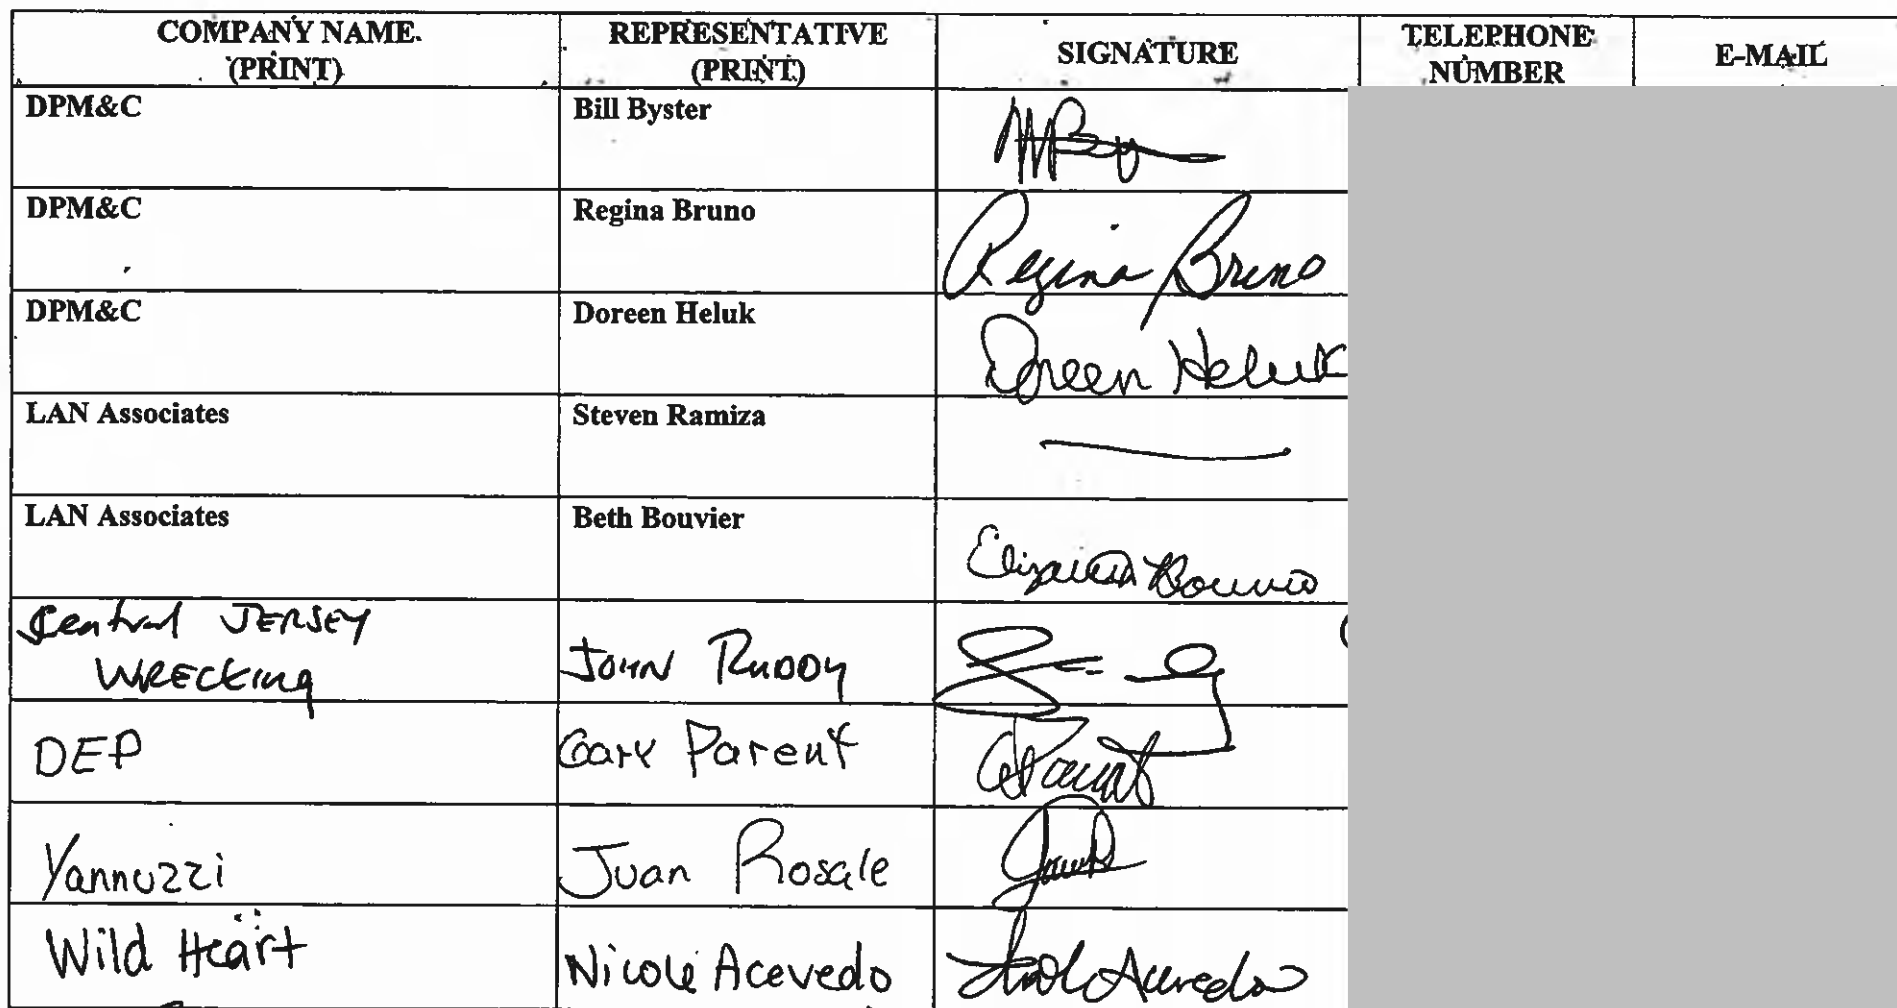 COMPANY NAME REPRESENTATIVE SIGNATURE TELEPHONE E-MAIL
(PRINT) (PRINT) NUMBER
DPM&C Bill Byster
DPM&C Regina Bruno Regina Bruno
DPM&C Doreen Heluk Doreen Heluk
LAN Associates Steven Ramiza
LAN Associates Beth Bouvier Elizabeth Bouvier
Central JERSEY
WRECKING JOHN RUDDY
DEP Gary Parent
Yannuzzi Juan Rosale
Wild Heart Nicole Acevedo Nicole Acevedo